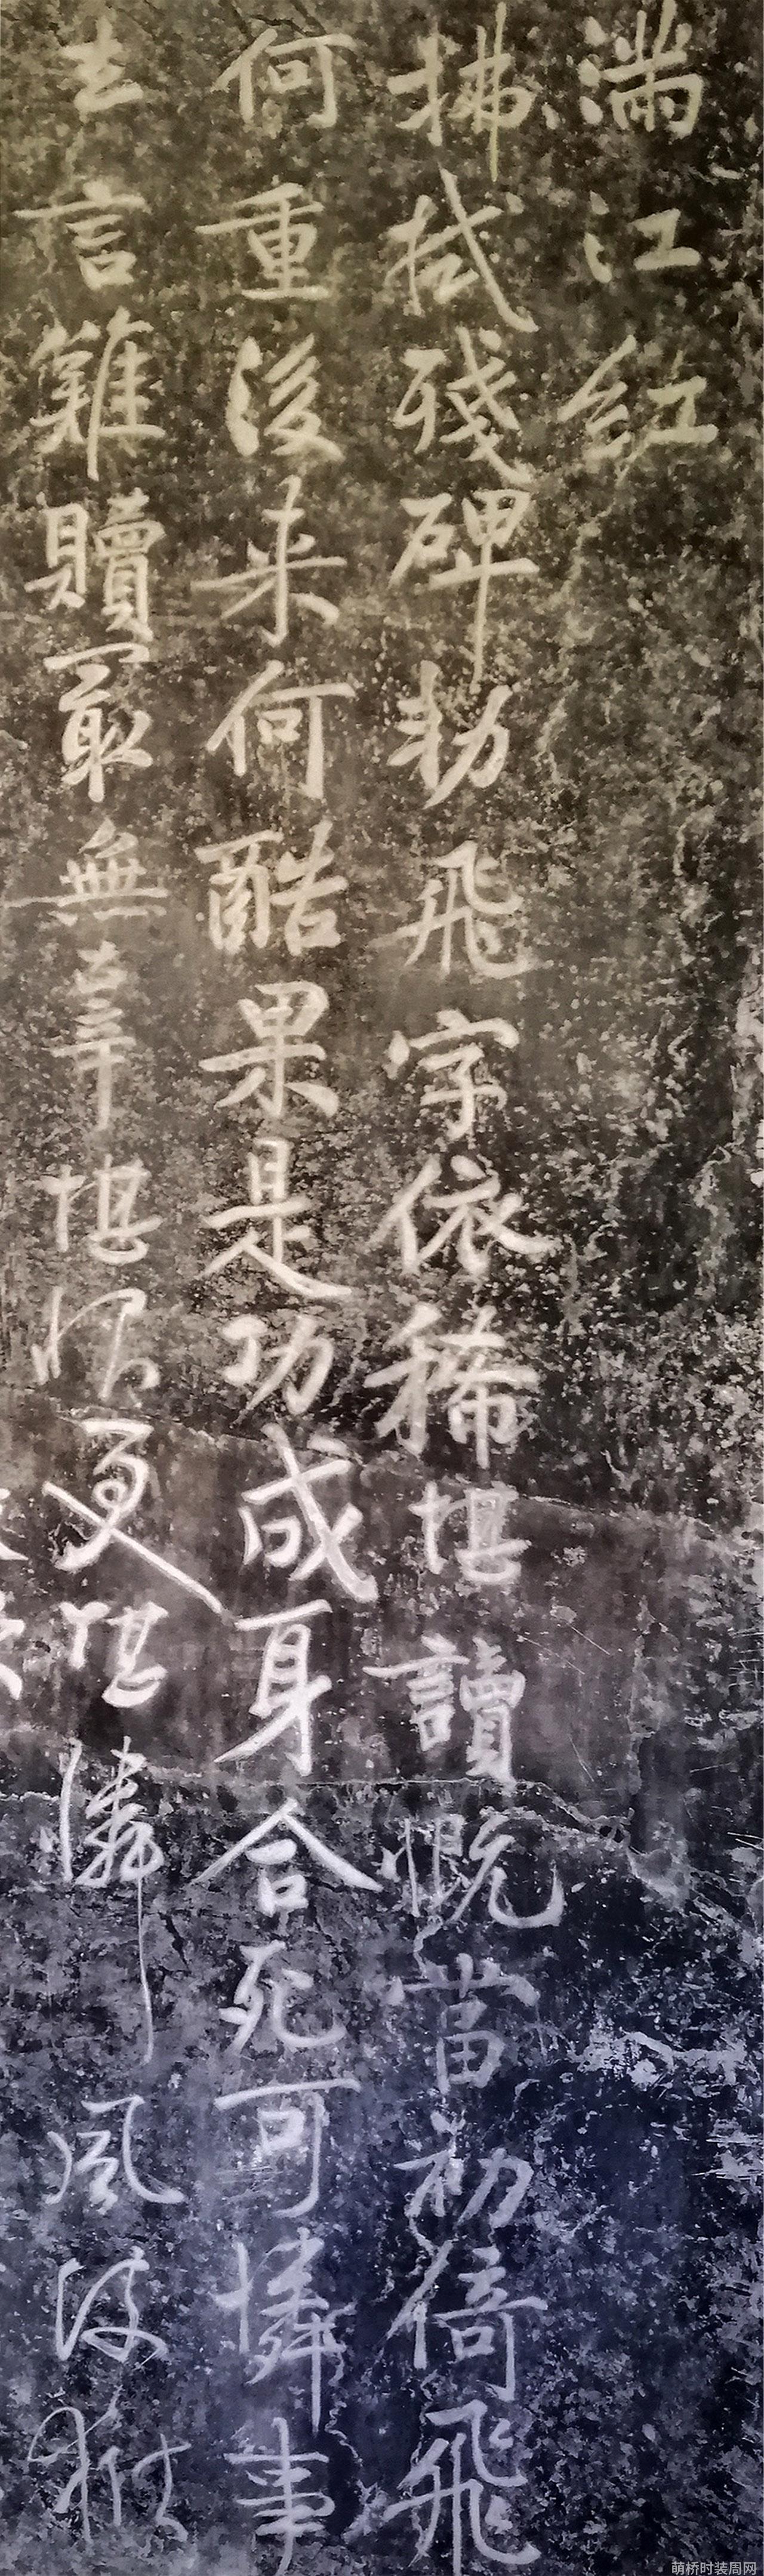 满江红
拂拭殘碑勑飛字依稀堪讀慨當初倚飛
何重後来何酷果是功成身合死可憐事
去言難贖最無辜堪恨更堪憐風波獄
萌桥时装周网